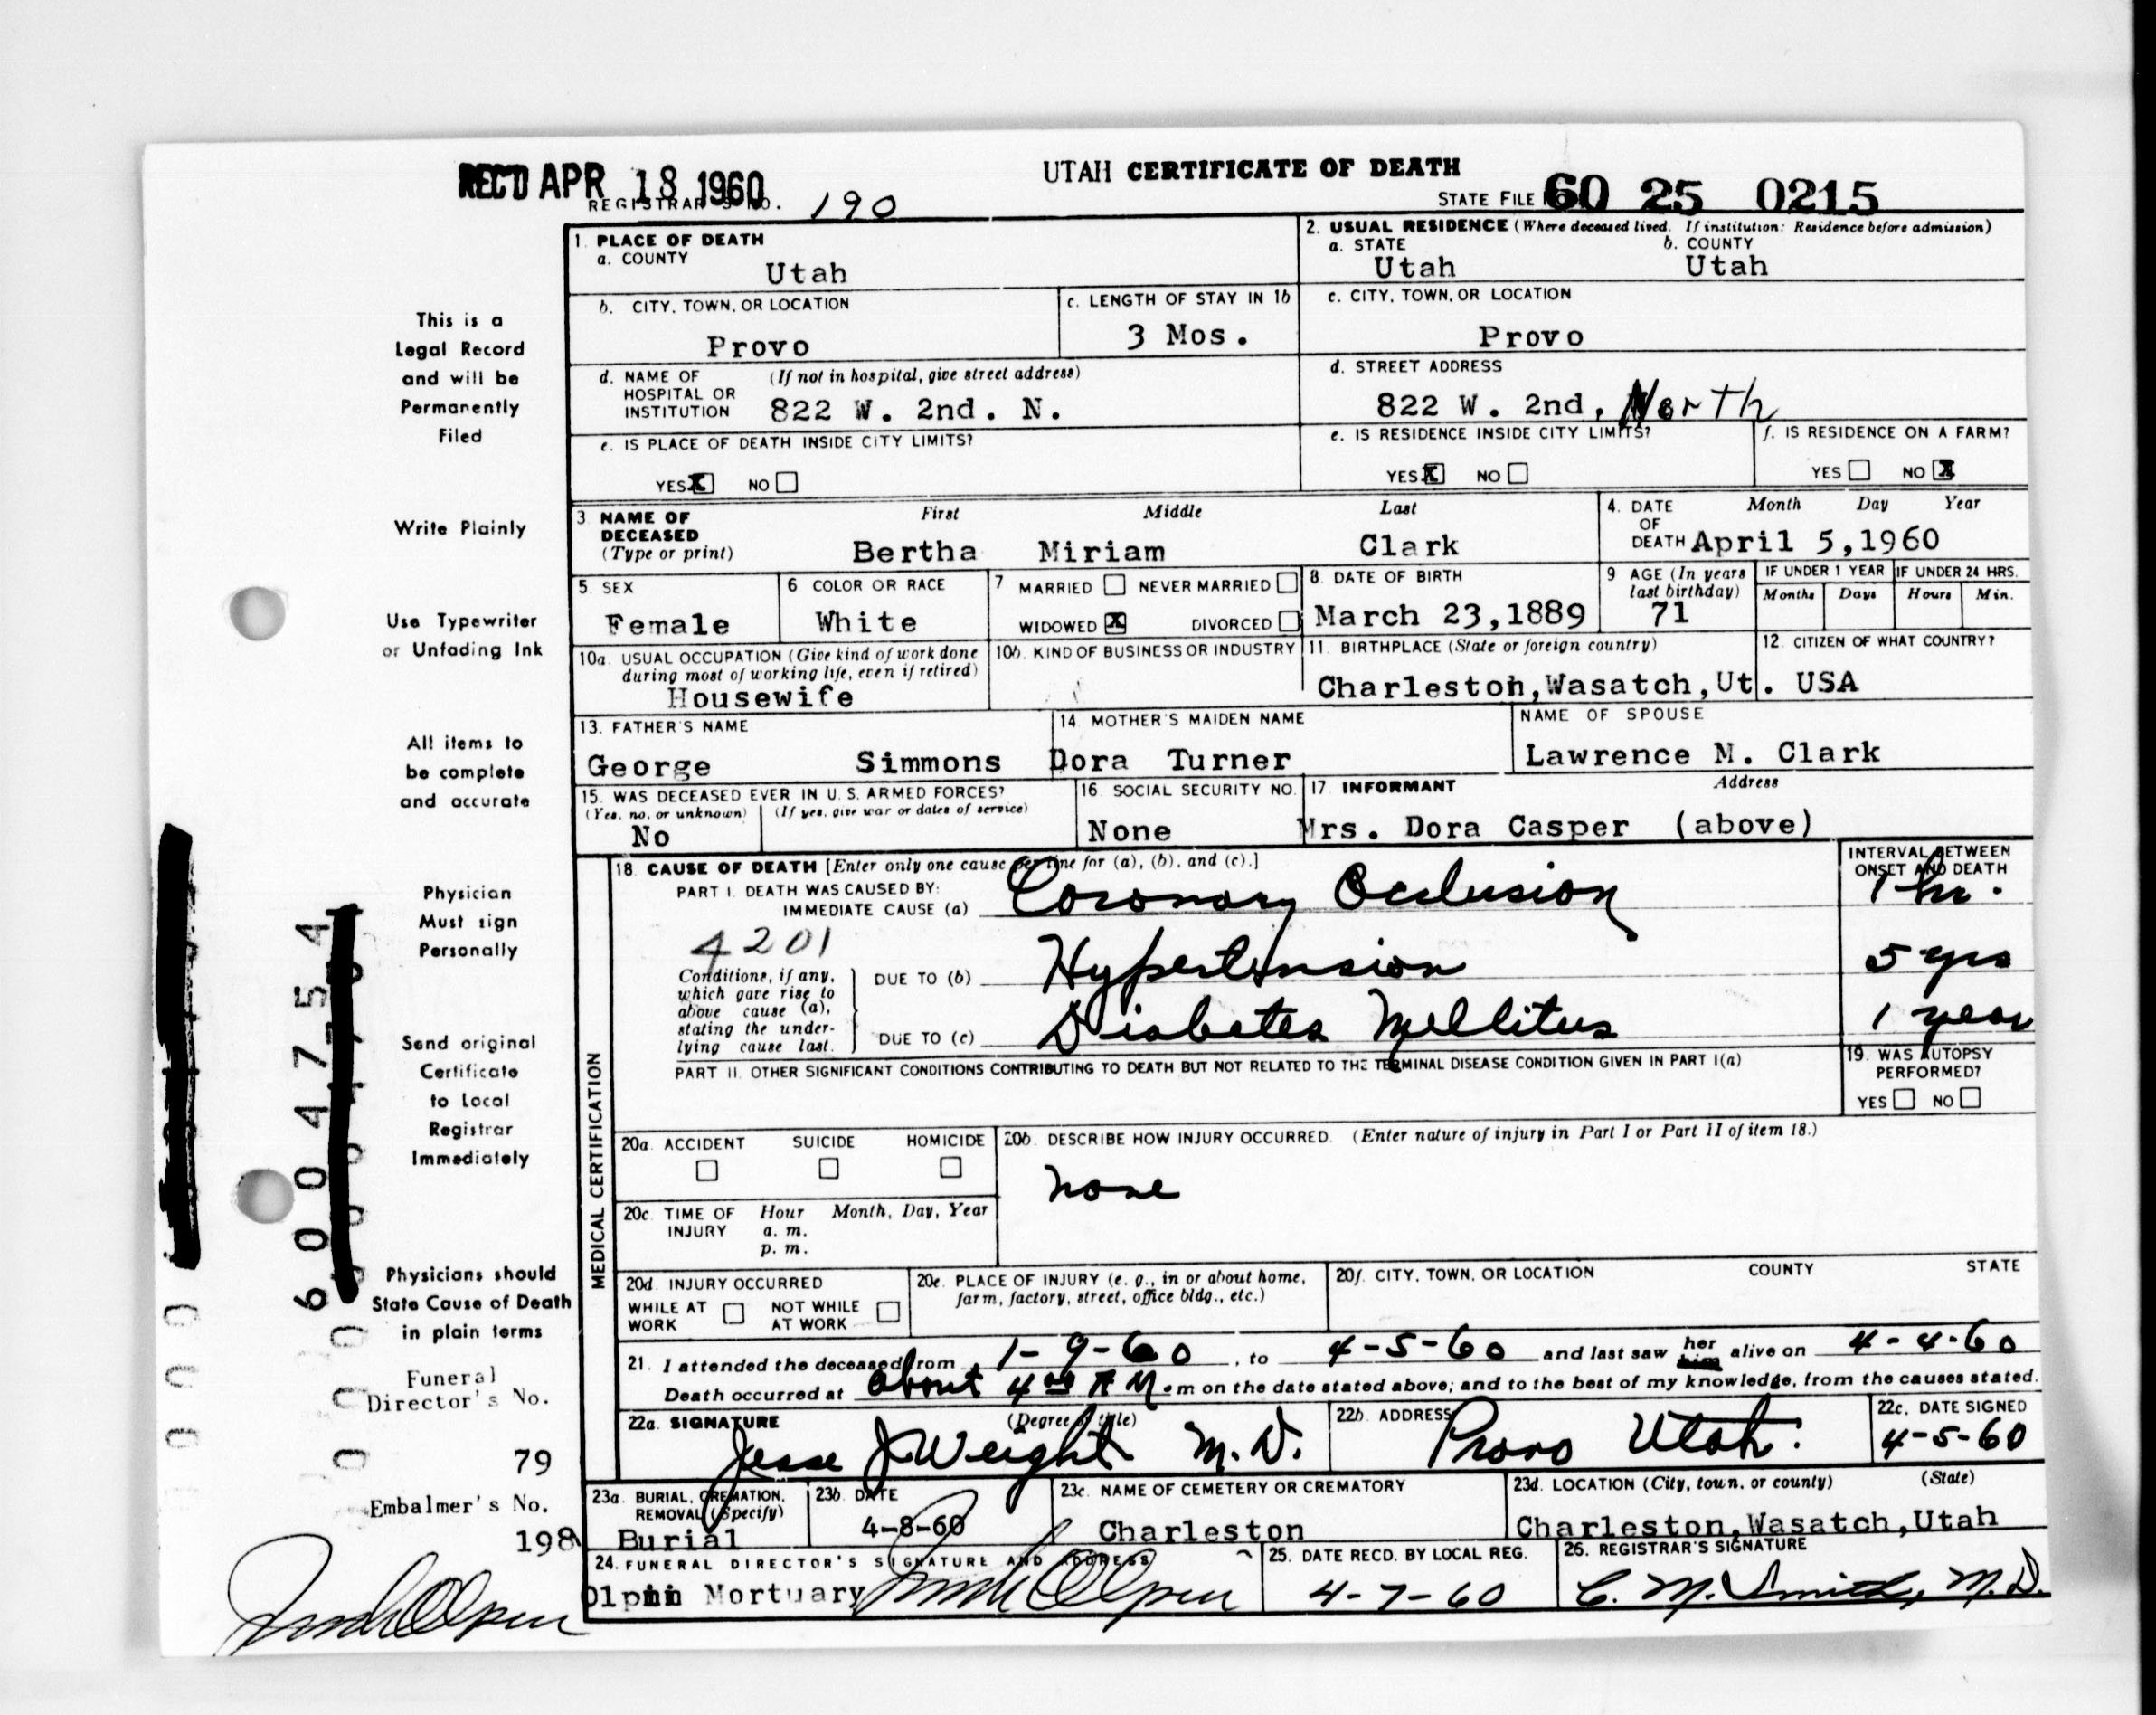 REC'D APR 18 1960
UTAH CERTIFICATE OF DEATH
REGISTRAR'S NO. 190
STATE FILE 60 25 0215
1. PLACE OF DEATH
a. COUNTY
Utah
2. USUAL RESIDENCE (Where deceased lived. If institution: Residence before admission)
a. STATE b. COUNTY
Utah Utah
b. CITY, TOWN, OR LOCATION
Provo
c. LENGTH OF STAY IN 1b
3 Mos.
c. CITY, TOWN, OR LOCATION
Provo
d. NAME OF HOSPITAL OR INSTITUTION (If not in hospital, give street address)
822 W. 2nd. N.
d. STREET ADDRESS
822 W. 2nd, North
e. IS PLACE OF DEATH INSIDE CITY LIMITS?
YES X NO
e. IS RESIDENCE INSIDE CITY LIMITS?
YES X NO
f. IS RESIDENCE ON A FARM?
YES NO X
3 NAME OF DECEASED (Type or print)
First Middle Last
Bertha Miriam Clark
4. DATE OF DEATH Month Day Year
April 5,1960
5. SEX
Female
6 COLOR OR RACE
White
7 MARRIED NEVER MARRIED
WIDOWED X DIVORCED
8. DATE OF BIRTH
March 23,1889
9 AGE (In years last birthday)
71
IF UNDER 1 YEAR IF UNDER 24 HRS.
Months Days Hours Min.
10a. USUAL OCCUPATION (Give kind of work done during most of working life, even if retired)
Housewife
10b. KIND OF BUSINESS OR INDUSTRY
11. BIRTHPLACE (State or foreign country)
Charleston,Wasatch,Ut.
12. CITIZEN OF WHAT COUNTRY?
USA
13. FATHER'S NAME
George Simmons
14. MOTHER'S MAIDEN NAME
Dora Turner
NAME OF SPOUSE
Lawrence M. Clark
15. WAS DECEASED EVER IN U. S. ARMED FORCES?
(Yes, no, or unknown) (If yes, give war or dates of service)
No
16. SOCIAL SECURITY NO.
None
17. INFORMANT Address
Mrs. Dora Casper (above)
18. CAUSE OF DEATH [Enter only one cause per line for (a), (b), and (c).]
INTERVAL BETWEEN ONSET AND DEATH
PART I. DEATH WAS CAUSED BY:
IMMEDIATE CAUSE (a) Coronary Occlusion 1 hr.
4201
Conditions, if any, which gave rise to above cause (a), stating the underlying cause last.
DUE TO (b) Hypertension 5 yrs
DUE TO (c) Diabetes Mellitus 1 year
PART II. OTHER SIGNIFICANT CONDITIONS CONTRIBUTING TO DEATH BUT NOT RELATED TO THE TERMINAL DISEASE CONDITION GIVEN IN PART I(a)
19. WAS AUTOPSY PERFORMED?
YES NO
MEDICAL CERTIFICATION
20a. ACCIDENT SUICIDE HOMICIDE
20b. DESCRIBE HOW INJURY OCCURRED. (Enter nature of injury in Part I or Part II of item 18.)
none
20c. TIME OF INJURY Hour Month, Day, Year
a. m.
p. m.
20d. INJURY OCCURRED
WHILE AT WORK NOT WHILE AT WORK
20e. PLACE OF INJURY (e. g., in or about home, farm, factory, street, office bldg., etc.)
20f. CITY, TOWN, OR LOCATION COUNTY STATE
21. I attended the deceased from 1-9-60, to 4-5-60 and last saw her him alive on 4-4-60
Death occurred at about 4 00 A M.m on the date stated above; and to the best of my knowledge, from the causes stated.
22a. SIGNATURE (Degree or title)
Jesse J Weight M. D.
22b. ADDRESS
Provo Utah.
22c. DATE SIGNED
4-5-60
23a. BURIAL, CREMATION, REMOVAL (Specify)
Burial
23b. DATE
4-8-60
23c. NAME OF CEMETERY OR CREMATORY
Charleston
23d. LOCATION (City, town, or county) (State)
Charleston,Wasatch,Utah
24. FUNERAL DIRECTOR'S SIGNATURE AND ADDRESS
Olpin Mortuary
25. DATE RECD. BY LOCAL REG.
4-7-60
26. REGISTRAR'S SIGNATURE
C. M. Smith, M.D.
This is a
Legal Record
and will be
Permanently
Filed
Write Plainly
Use Typewriter
or Unfading Ink
All items to
be complete
and accurate
Physician
Must sign
Personally
Send original
Certificate
to Local
Registrar
Immediately
Physicians should
State Cause of Death
in plain terms
Funeral
Director's No.
79
Embalmer's No.
198
6004754